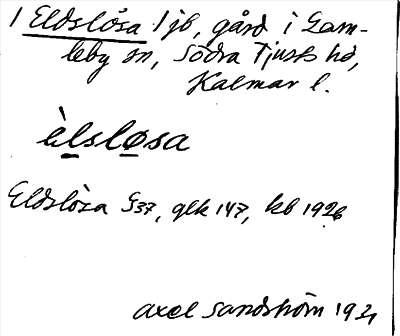 1 Eldslösa 1 jb, gård i Gam-
leby sn, Södra Tjusts hd,
Kalmar l.
èlsløsa
Eldslösa G37, glk 147, kb 1926
Axel Sandström 1921